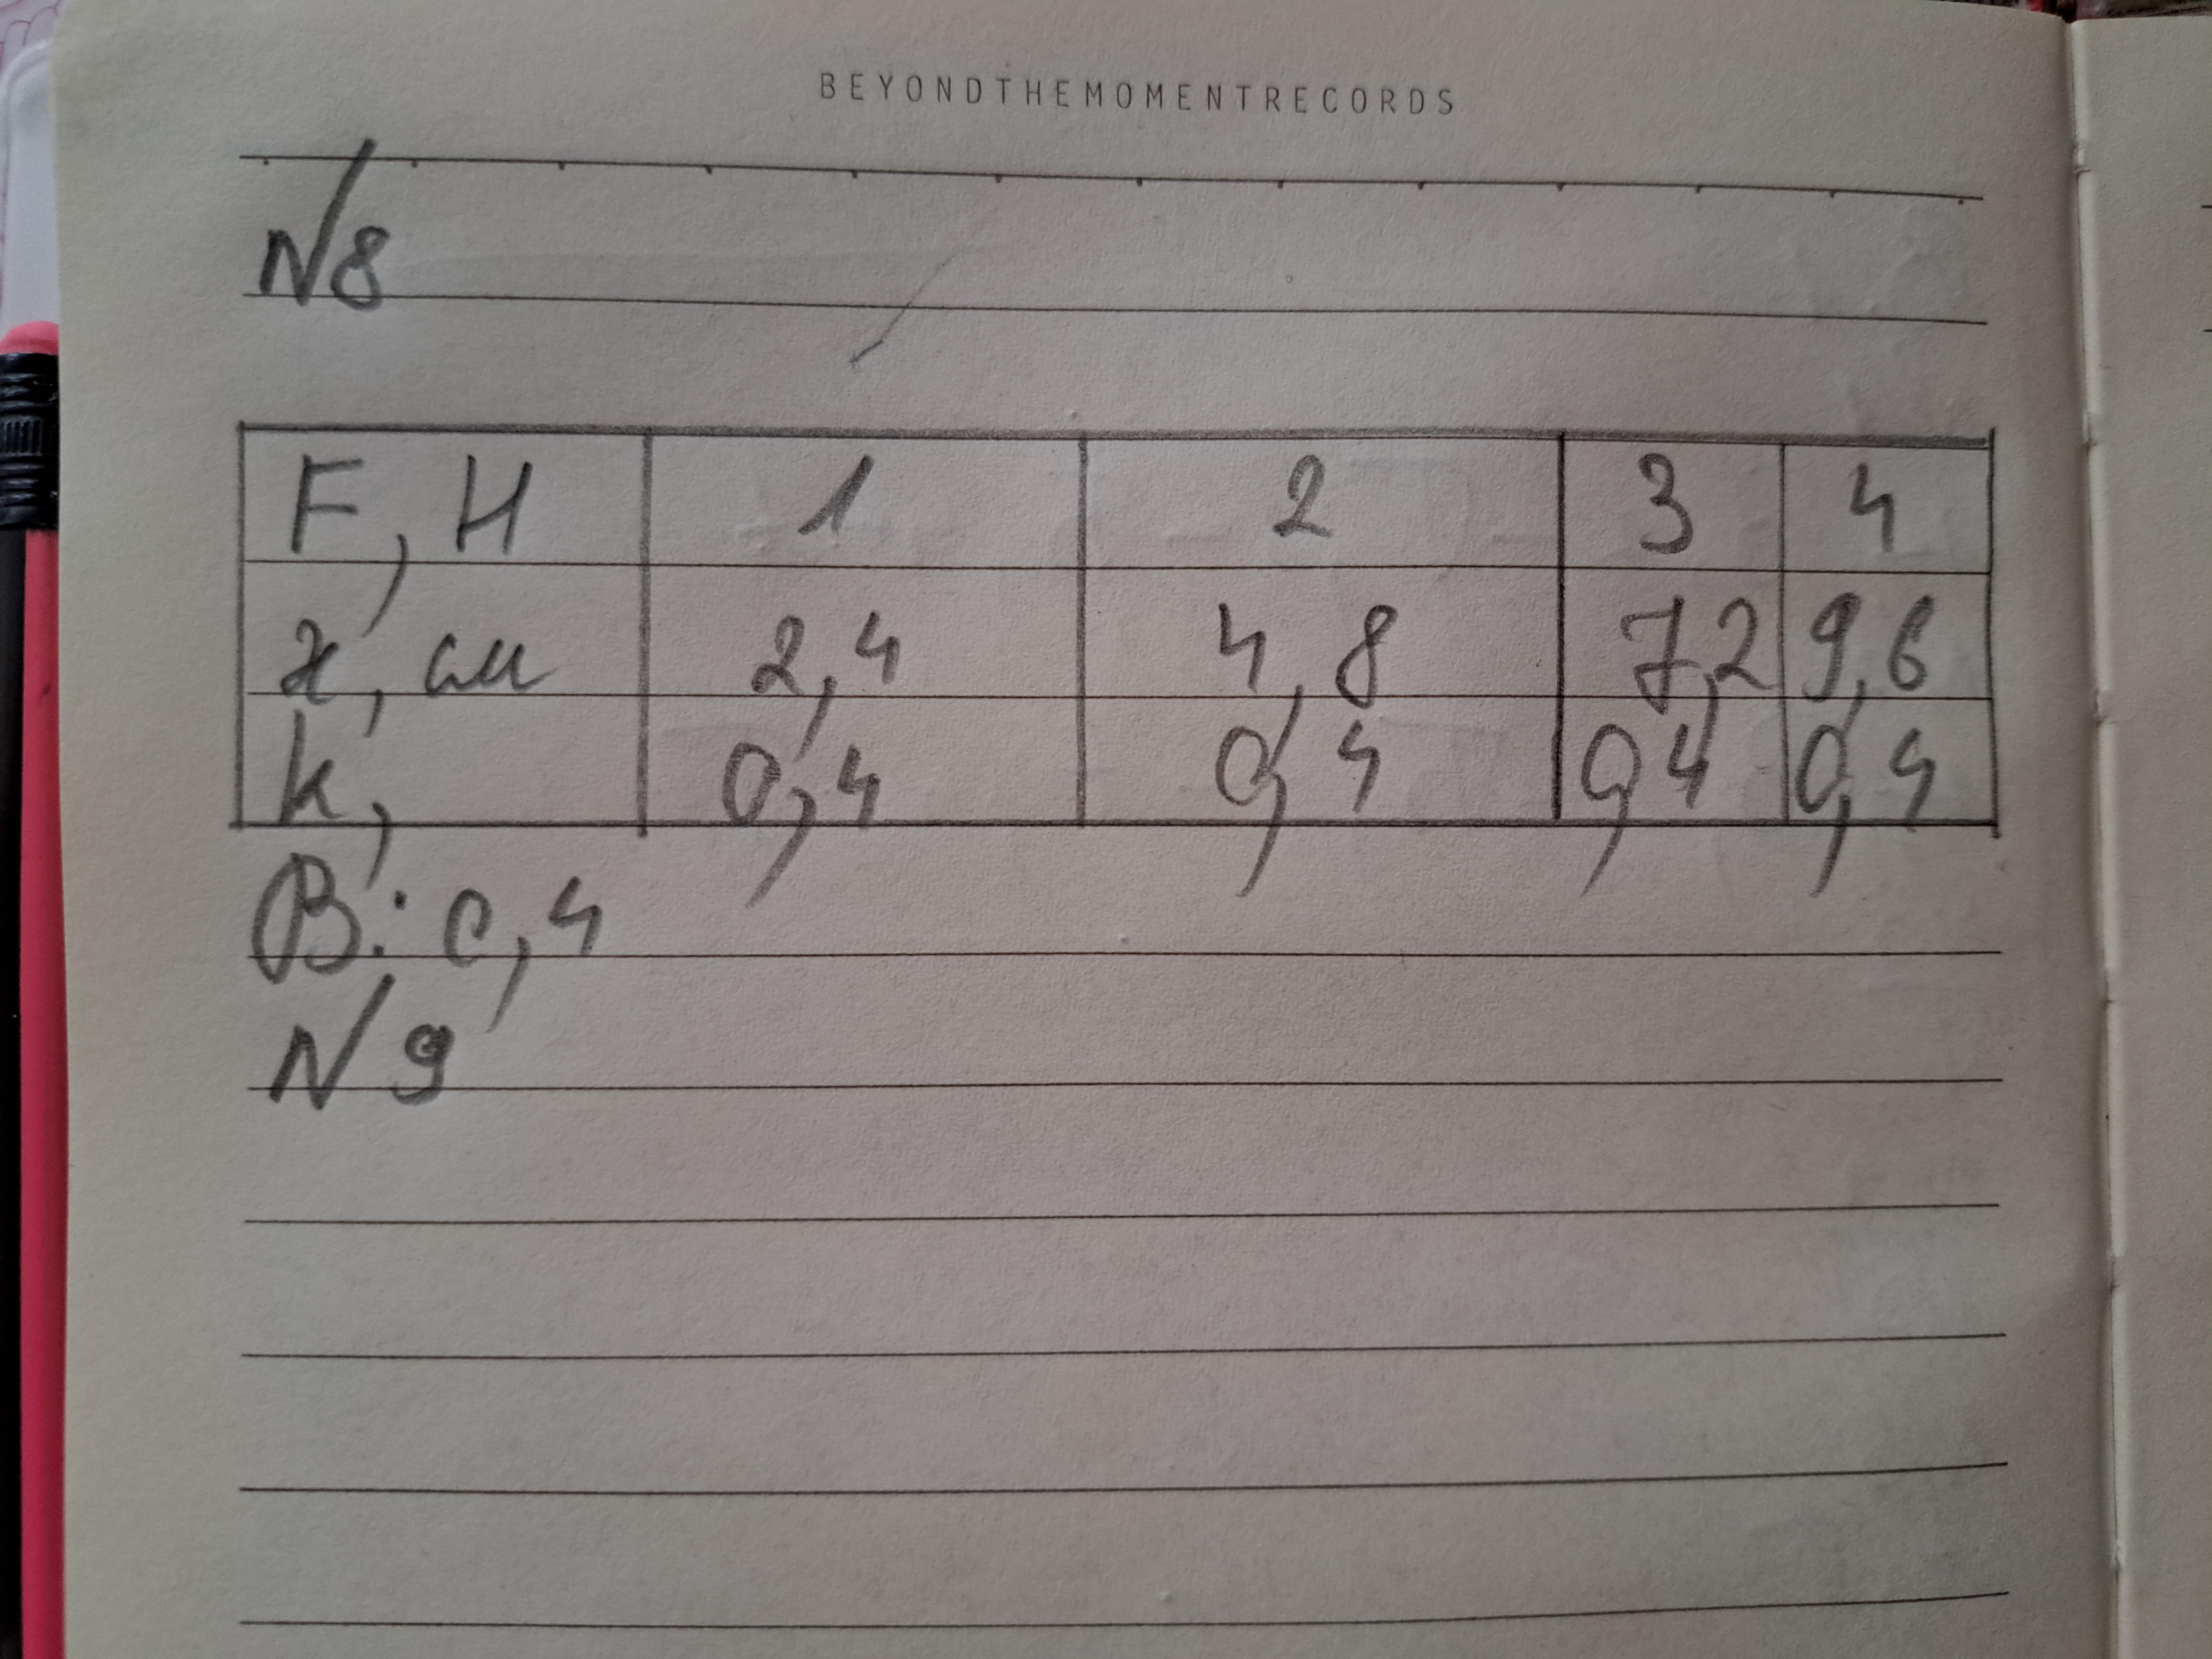 BEYONDTHEMOMENTRECORDS
N8
F, Н 1 2 3 4
x, см 2,4 4,8 7,2 9,6
k, 0,4 0,4 0,4 0,4
В: 0,4
N9